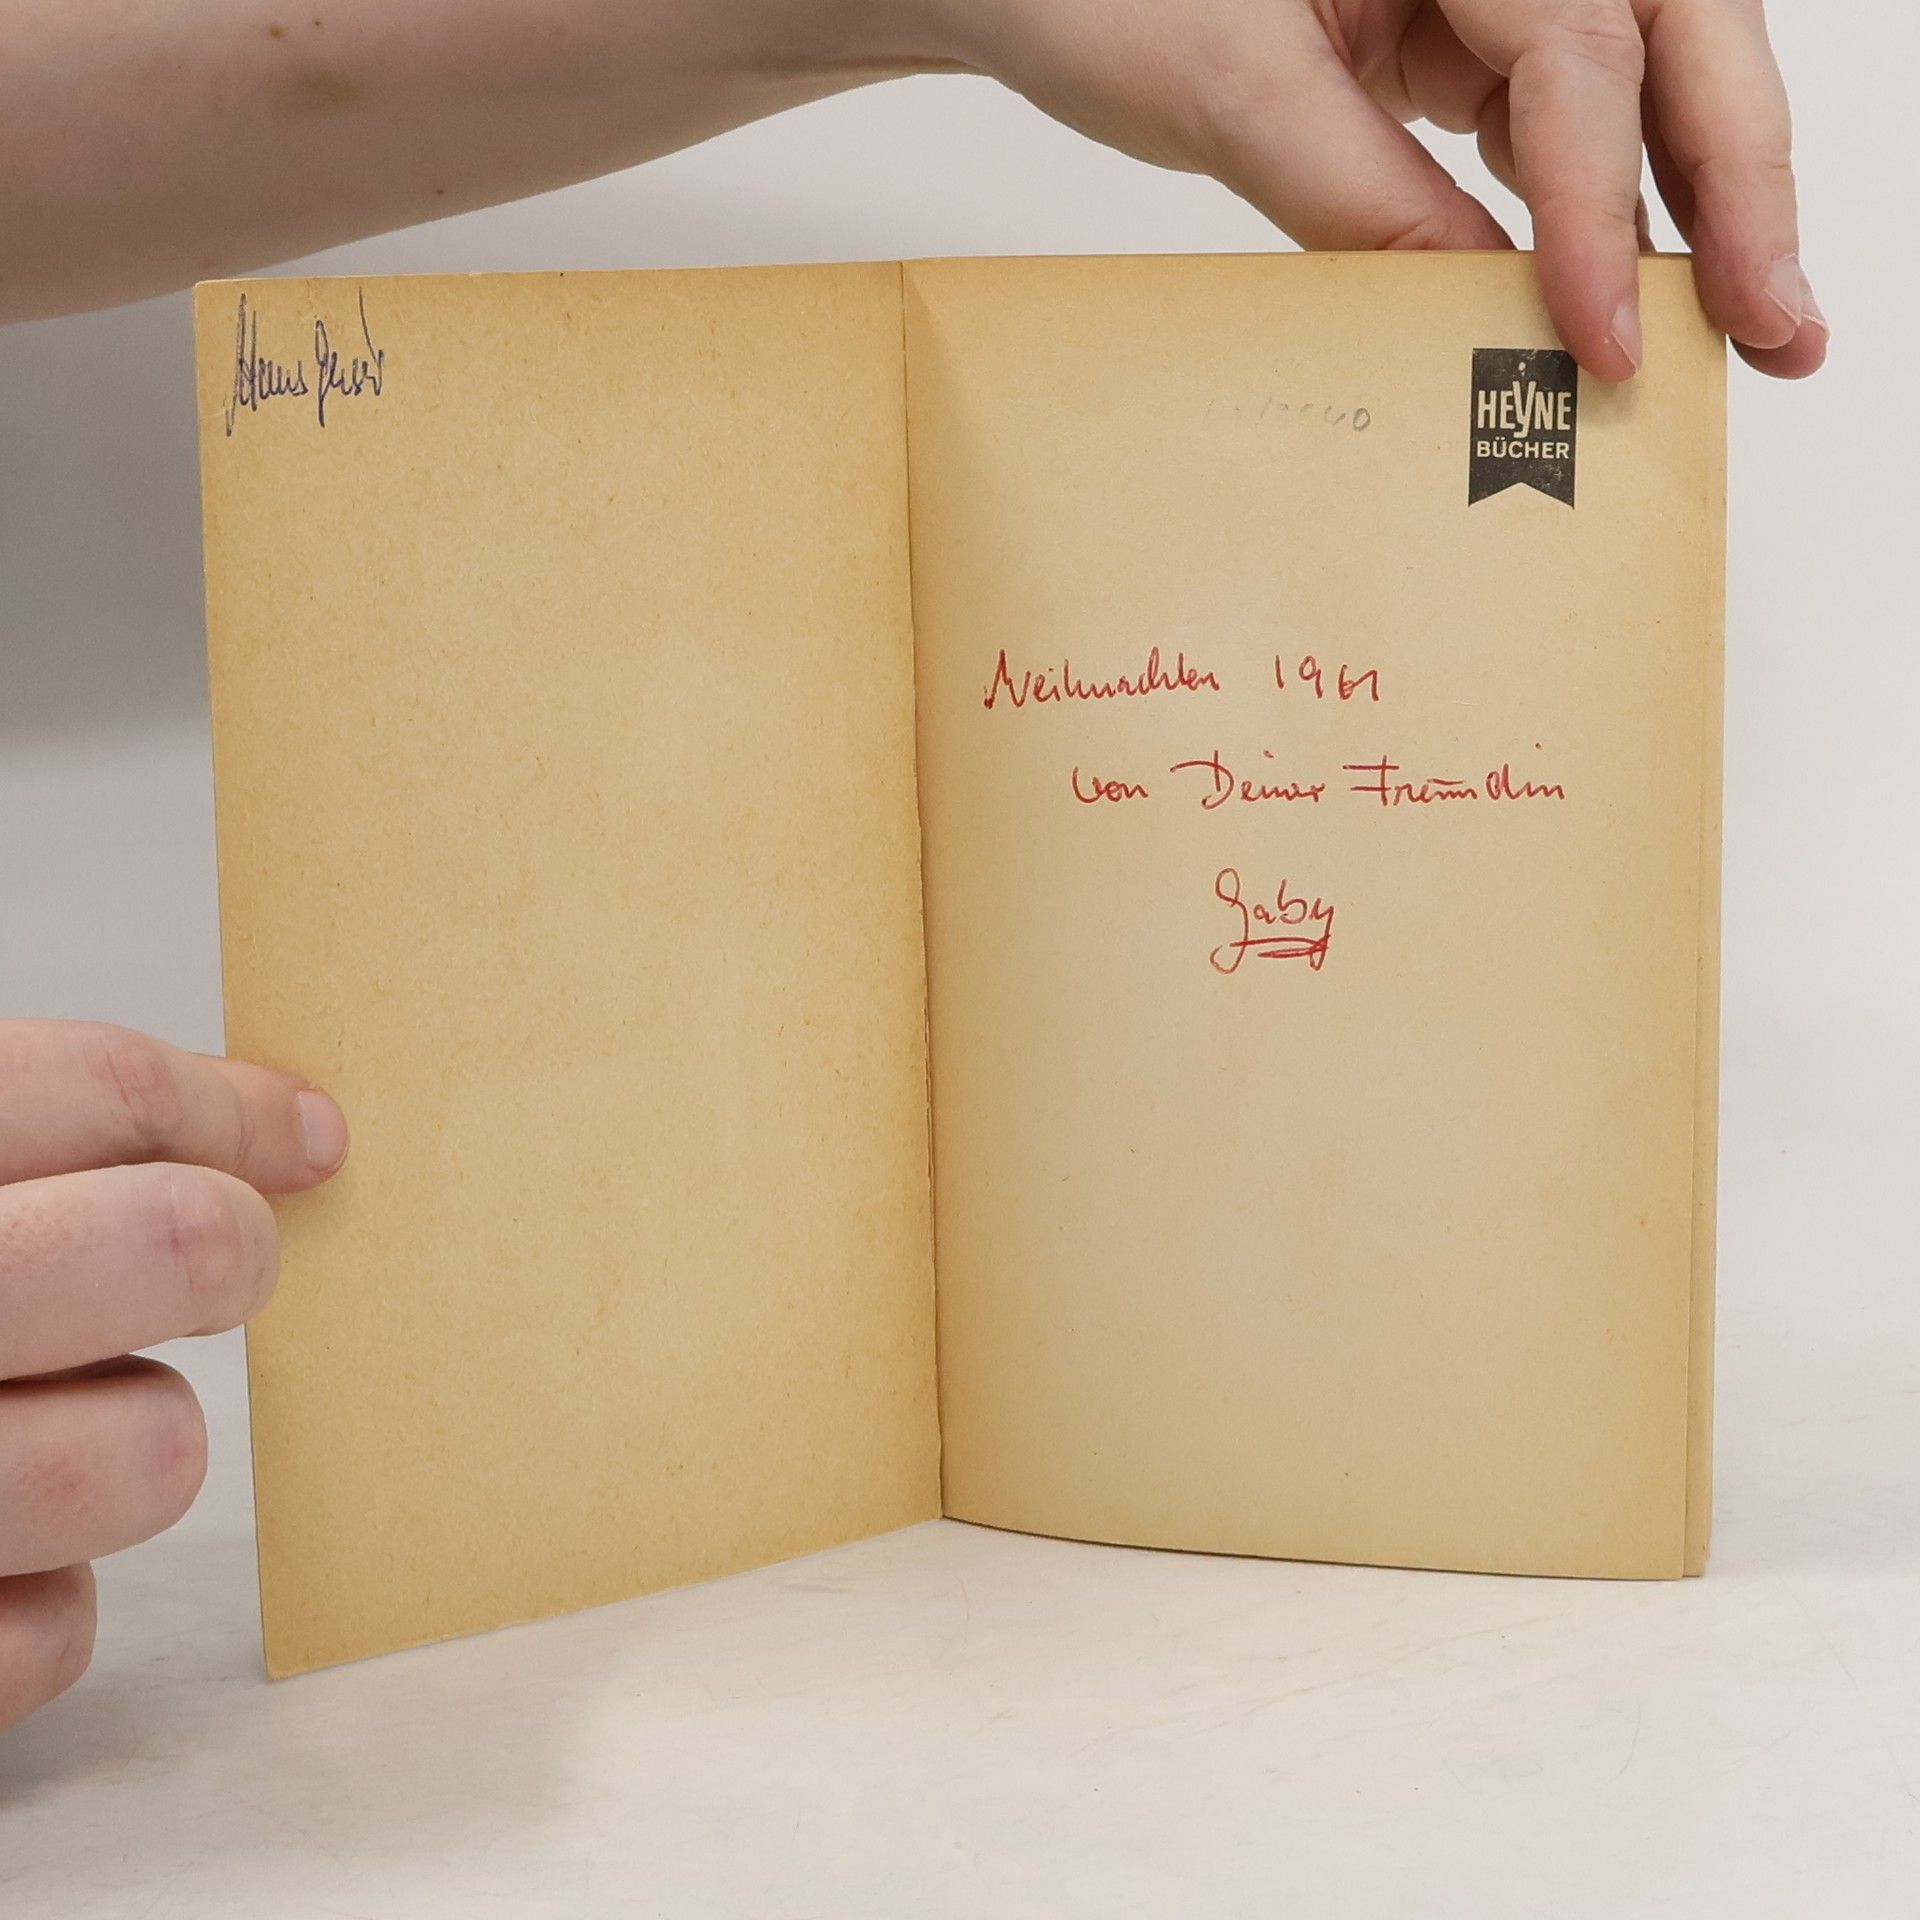 Hans
HEYNE
BÜCHER
Weihnachten 1961
von Deiner Freundin
Gaby